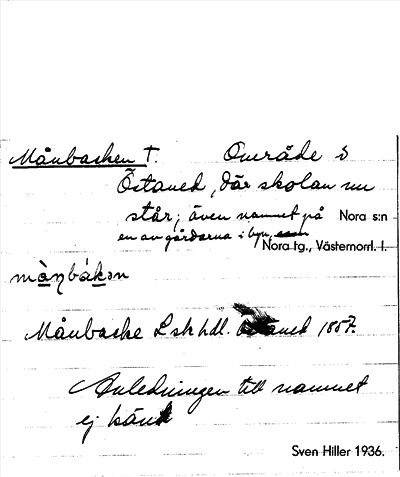 Månbacken T. Område i
Östaned, där skolan nu
står; även namnet på Nora s:n
en av gårdarna i byn,
Nora tg., Västernorrl. l.
mànbákən
Månbacke Lskhdl. 1857.
Anledningen till namnet
ej känd
Sven Hiller 1936.